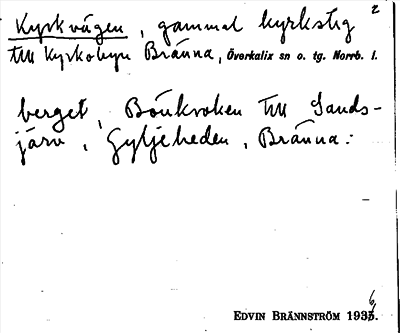 2
Kyrkvägen, gammal kyrkstig
till Kyrkobyn Bränna, Överkalix sn o. tg. Norrb. l.
berget, Bönkroken till Sands-
järv, Gyljeheden, Bränna:
EDVIN BRÄNNSTRÖM 1936.